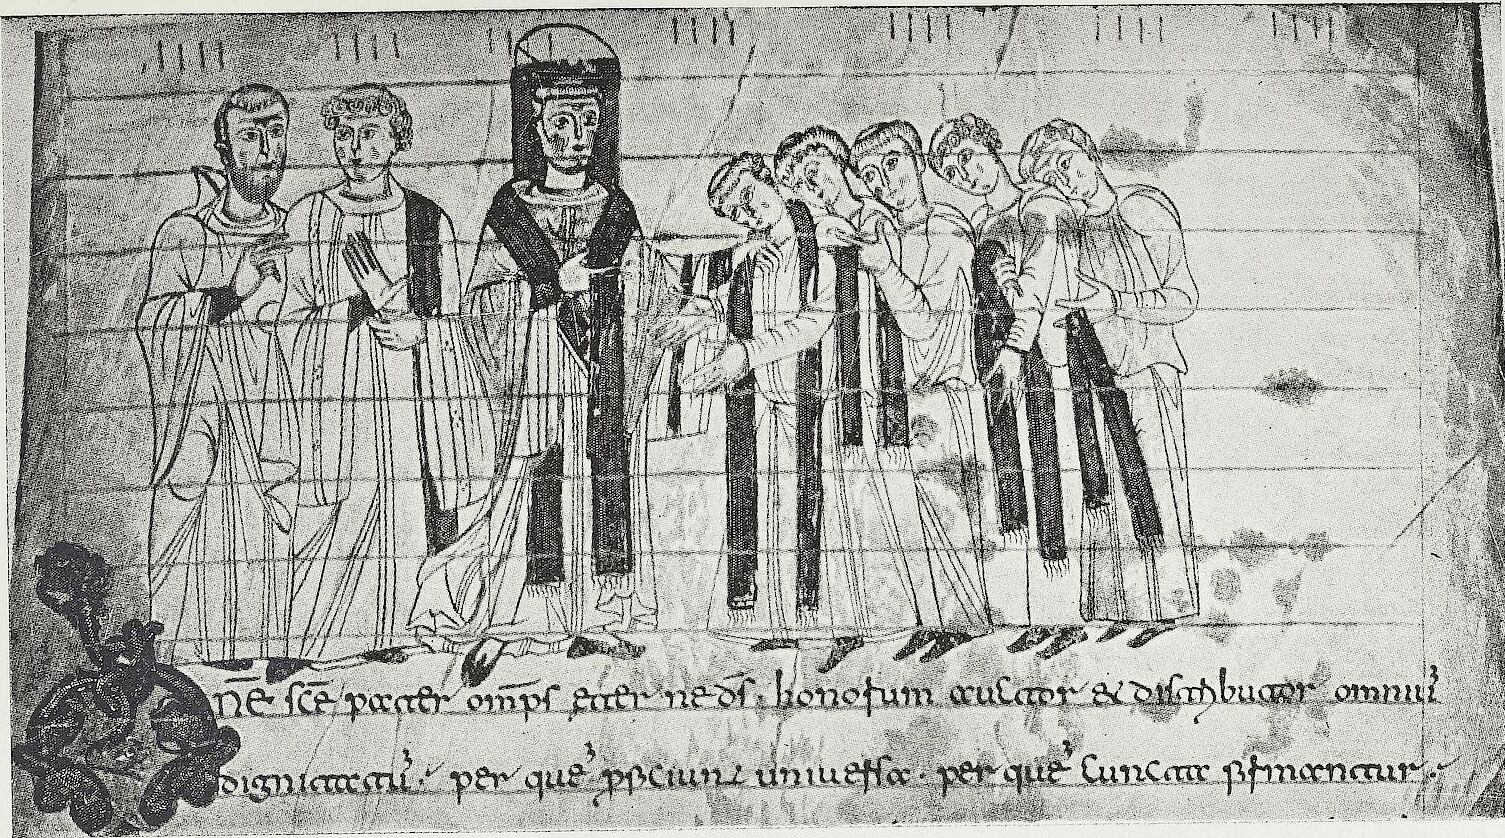 Dn̄e sc̄e pater om̄ps eterne d̄s. honorum auctor & distributor omniū
dignitatū. per quē ꝓficiunt universa. per quē cuncta firmantur.